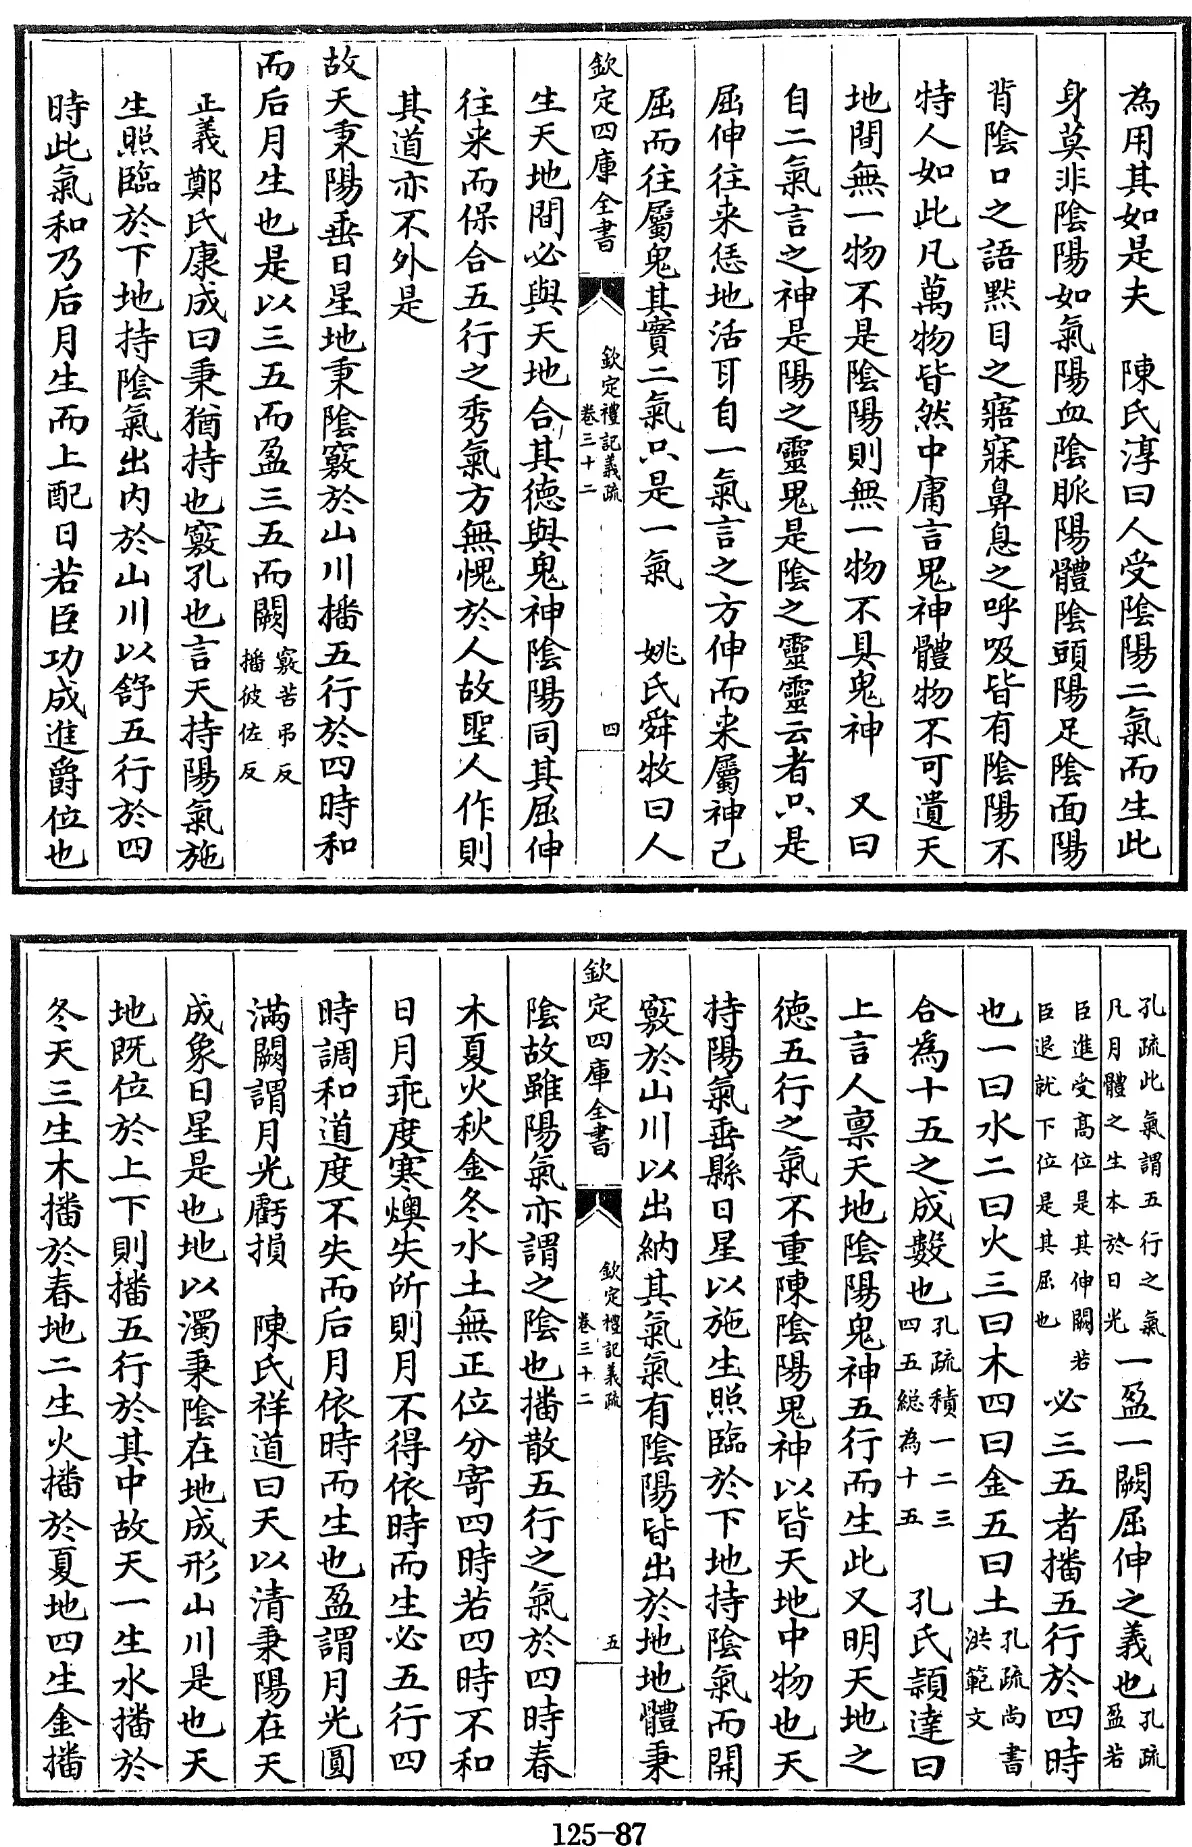 為用其如是夫　陳氏淳曰人受陰陽二氣而生此
身莫非陰陽如氣陽血陰脈陽體陰頭陽足陰面陽
背陰口之語默目之寤寐鼻息之呼吸皆有陰陽不
特人如此凡萬物皆然中庸言鬼神體物不可遺天
地間無一物不是陰陽則無一物不具鬼神　又曰
自二氣言之神是陽之靈鬼是陰之靈靈云者只是
屈伸往来恁地活耳自一氣言之方伸而来屬神已
屈而往屬鬼其實二氣只是一氣　姚氏舜牧曰人
欽定四庫全書
欽定禮記義疏
卷三十二
四
生天地間必與天地合其德與鬼神陰陽同其屈伸
往来而保合五行之秀氣方無愧於人故聖人作則
其道亦不外是
故天秉陽垂日星地秉陰竅於山川播五行於四時和
而后月生也是以三五而盈三五而闕
竅苦弔反
播彼佐反
正義鄭氏康成曰秉猶持也竅孔也言天持陽氣施
生照臨於下地持陰氣出内於山川以舒五行於四
時此氣和乃后月生而上配日若臣功成進爵位也
孔疏此氣謂五行之氣
凡月體之生本於日光
一盈一闕屈伸之義也
孔疏
盈若
臣進受高位是其伸闕若
臣退就下位是其屈也
必三五者播五行於四時
也一曰水二曰火三曰木四曰金五曰土
孔疏尚書
洪範文
合為十五之成數也
孔疏積一二三
四五總為十五
孔氏頴達曰
上言人禀天地陰陽鬼神五行而生此又明天地之
德五行之氣不重陳陰陽鬼神以皆天地中物也天
持陽氣垂縣日星以施生照臨於下地持陰氣而開
竅於山川以出納其氣氣有陰陽皆出於地地體秉
欽定四庫全書
欽定禮記義疏
卷三十二
五
陰故雖陽氣亦謂之陰也播散五行之氣於四時春
木夏火秋金冬水土無正位分寄四時若四時不和
日月乖度寒燠失所則月不得依時而生必五行四
時調和道度不失而后月依時而生也盈謂月光圓
滿闕謂月光虧損　陳氏祥道曰天以清秉陽在天
成象日星是也地以濁秉陰在地成形山川是也天
地既位於上下則播五行於其中故天一生水播於
冬天三生木播於春地二生火播於夏地四生金播
125-87